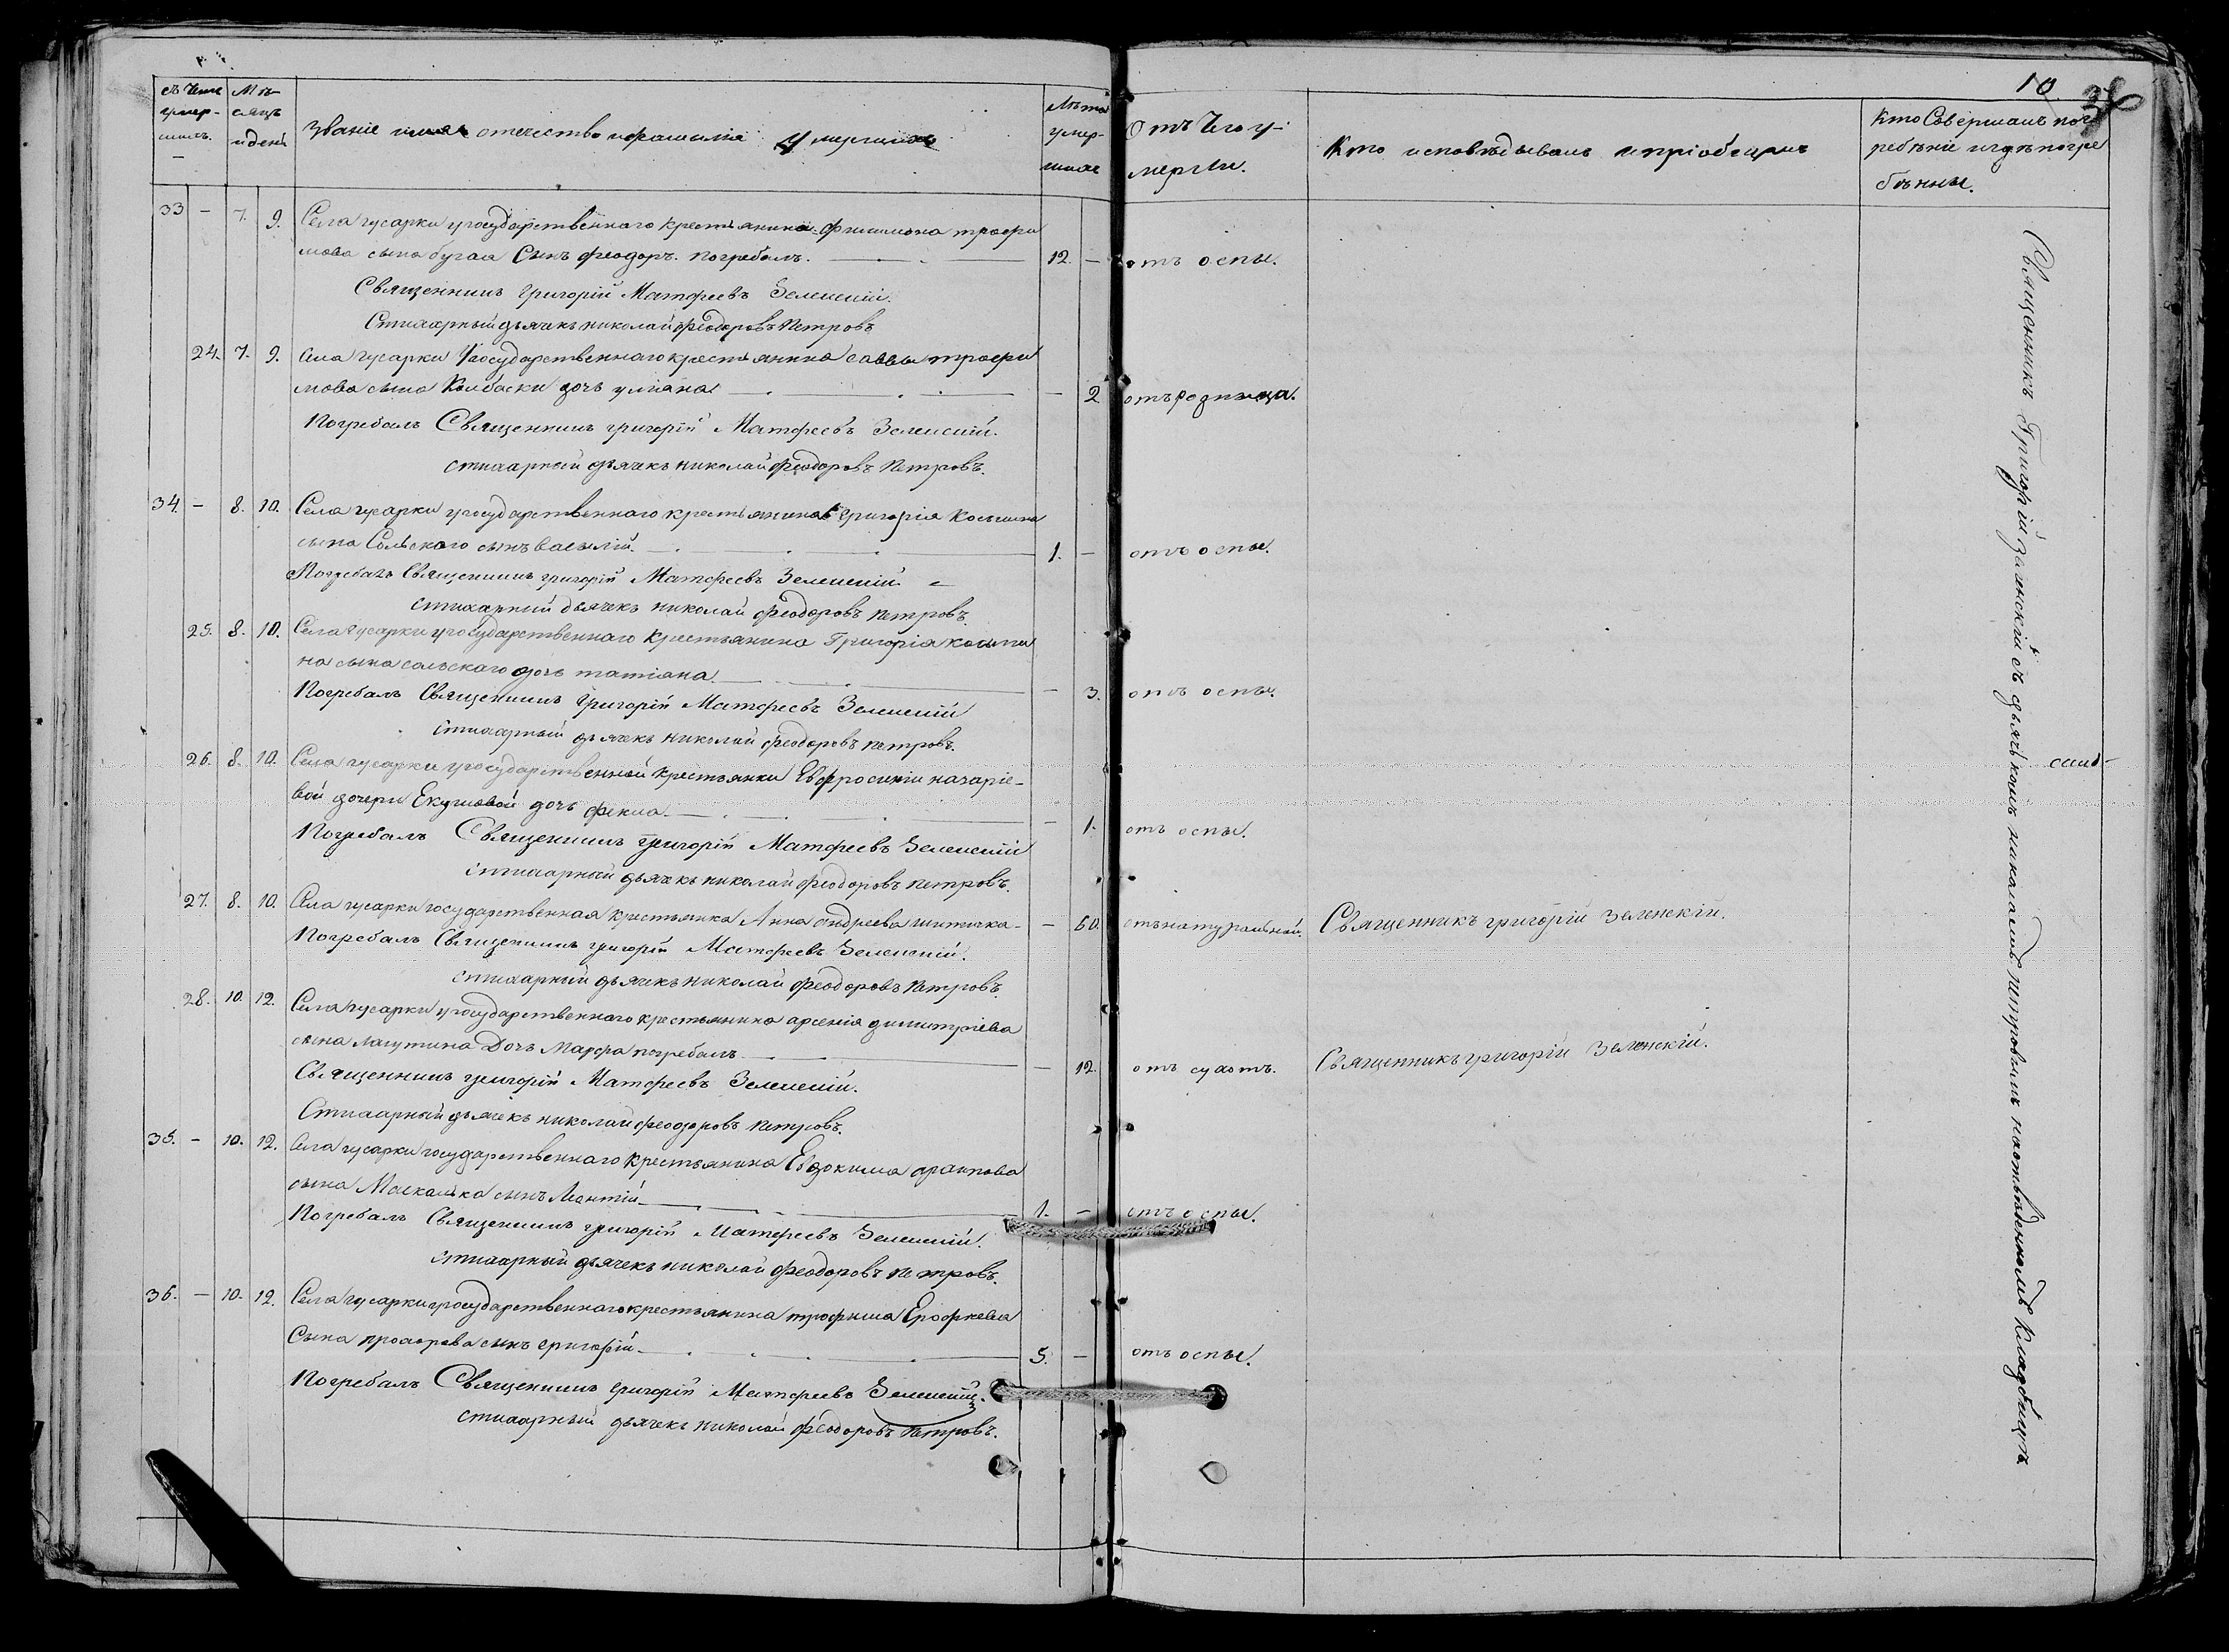 10
Счетъ умер-шихъ.
Мѣ-сяцъ и день
Званіе имя отечество и фамилія умершихъ
Лѣта умер-шихъ
Отъ чего у-мерли.
Кто исповѣдывалъ и пріобщалъ
Кто Совершалъ погребѣніе и гдѣ погребѣнны.
33 — 7. 9. Села гусарки у государственнаго крестьянина Филимона трофи
мова сына бугая Сынъ феодоръ. погребалъ. 12. — отъ оспы.
Священникъ григорій Матфеевъ Зеленскій.
Стихарный дьячекъ николай феодоровъ Петровъ
24. 7. 9. Села гусарки у государственнаго крестьянина саввы трофи
мова сына Колбаски дочь улияна. — 2 отъ родимца.
Погребалъ Священникъ григорій Матфеевъ Зеленскій.
стихарный дьячекъ николай феодоровъ Петровъ.
34. — 8. 10. Села гусарки у государственнаго крестьянина григорія Косьмина
сына Сольского сынъ василій. 1. — отъ оспы.
Погребалъ Священникъ григорій Матфеевъ Зеленскій
стихарный дьячекъ николай феодоровъ петровъ.
25. 8. 10. Села гусарки у государственнаго крестьянина Григорія косьми
на сына сольского дочь татіана. — 3. отъ оспы.
Погребалъ Священникъ Григорій Матфеевъ Зеленскій
стихарный дьячекъ николай феодоровъ петровъ.
26. 8. 10. Села гусарки у государственной крестьянки Евфросиніи назаріе-
вой дочери дочь фекла. — 1. отъ оспы.
Погребалъ Священникъ григорій Матфеевъ Зеленскій
стихарный дьячекъ николай феодоровъ петровъ.
27. 8. 10. Села гусарки государственная крестьянка Анна андреева — 60. отъ натуральной. Священникъ григорій Зеленскій.
Погребалъ Священникъ григорій Матфеевъ Зеленскій.
стихарный дьячекъ николай феодоровъ Петровъ.
28. 10. 12. Села гусарки у государственнаго крестьянина арсенія димитріева
сына лагутина Дочь Марфа погребалъ — 12. отъ сухотъ. Священникъ григорій Зеленскій.
Священникъ григорій Матфеевъ Зеленскій.
Стихарный дьячекъ николай феодоровъ петровъ.
35. — 10. 12. Села гусарки государственнаго крестьянина Евдокима
сына Москалька сынъ Леонтій 1. — отъ оспы.
Погребалъ Священникъ григорій Матфеевъ Зеленскій.
стихарный дьячекъ николай феодоровъ петровъ.
36. — 10. 12. Села гусарки у государственнаго крестьянина трофима Ерофеева
Сына прохорева сынъ григорій 5. — отъ оспы.
Погребалъ Священникъ григорій Матфеевъ Зеленскій.
стихарный дьячекъ николай феодоровъ петровъ.
Священникъ Григорій зеленскій съ дьячькомъ николаемъ петровымъ на отвѣденномъ Кладбищѣ